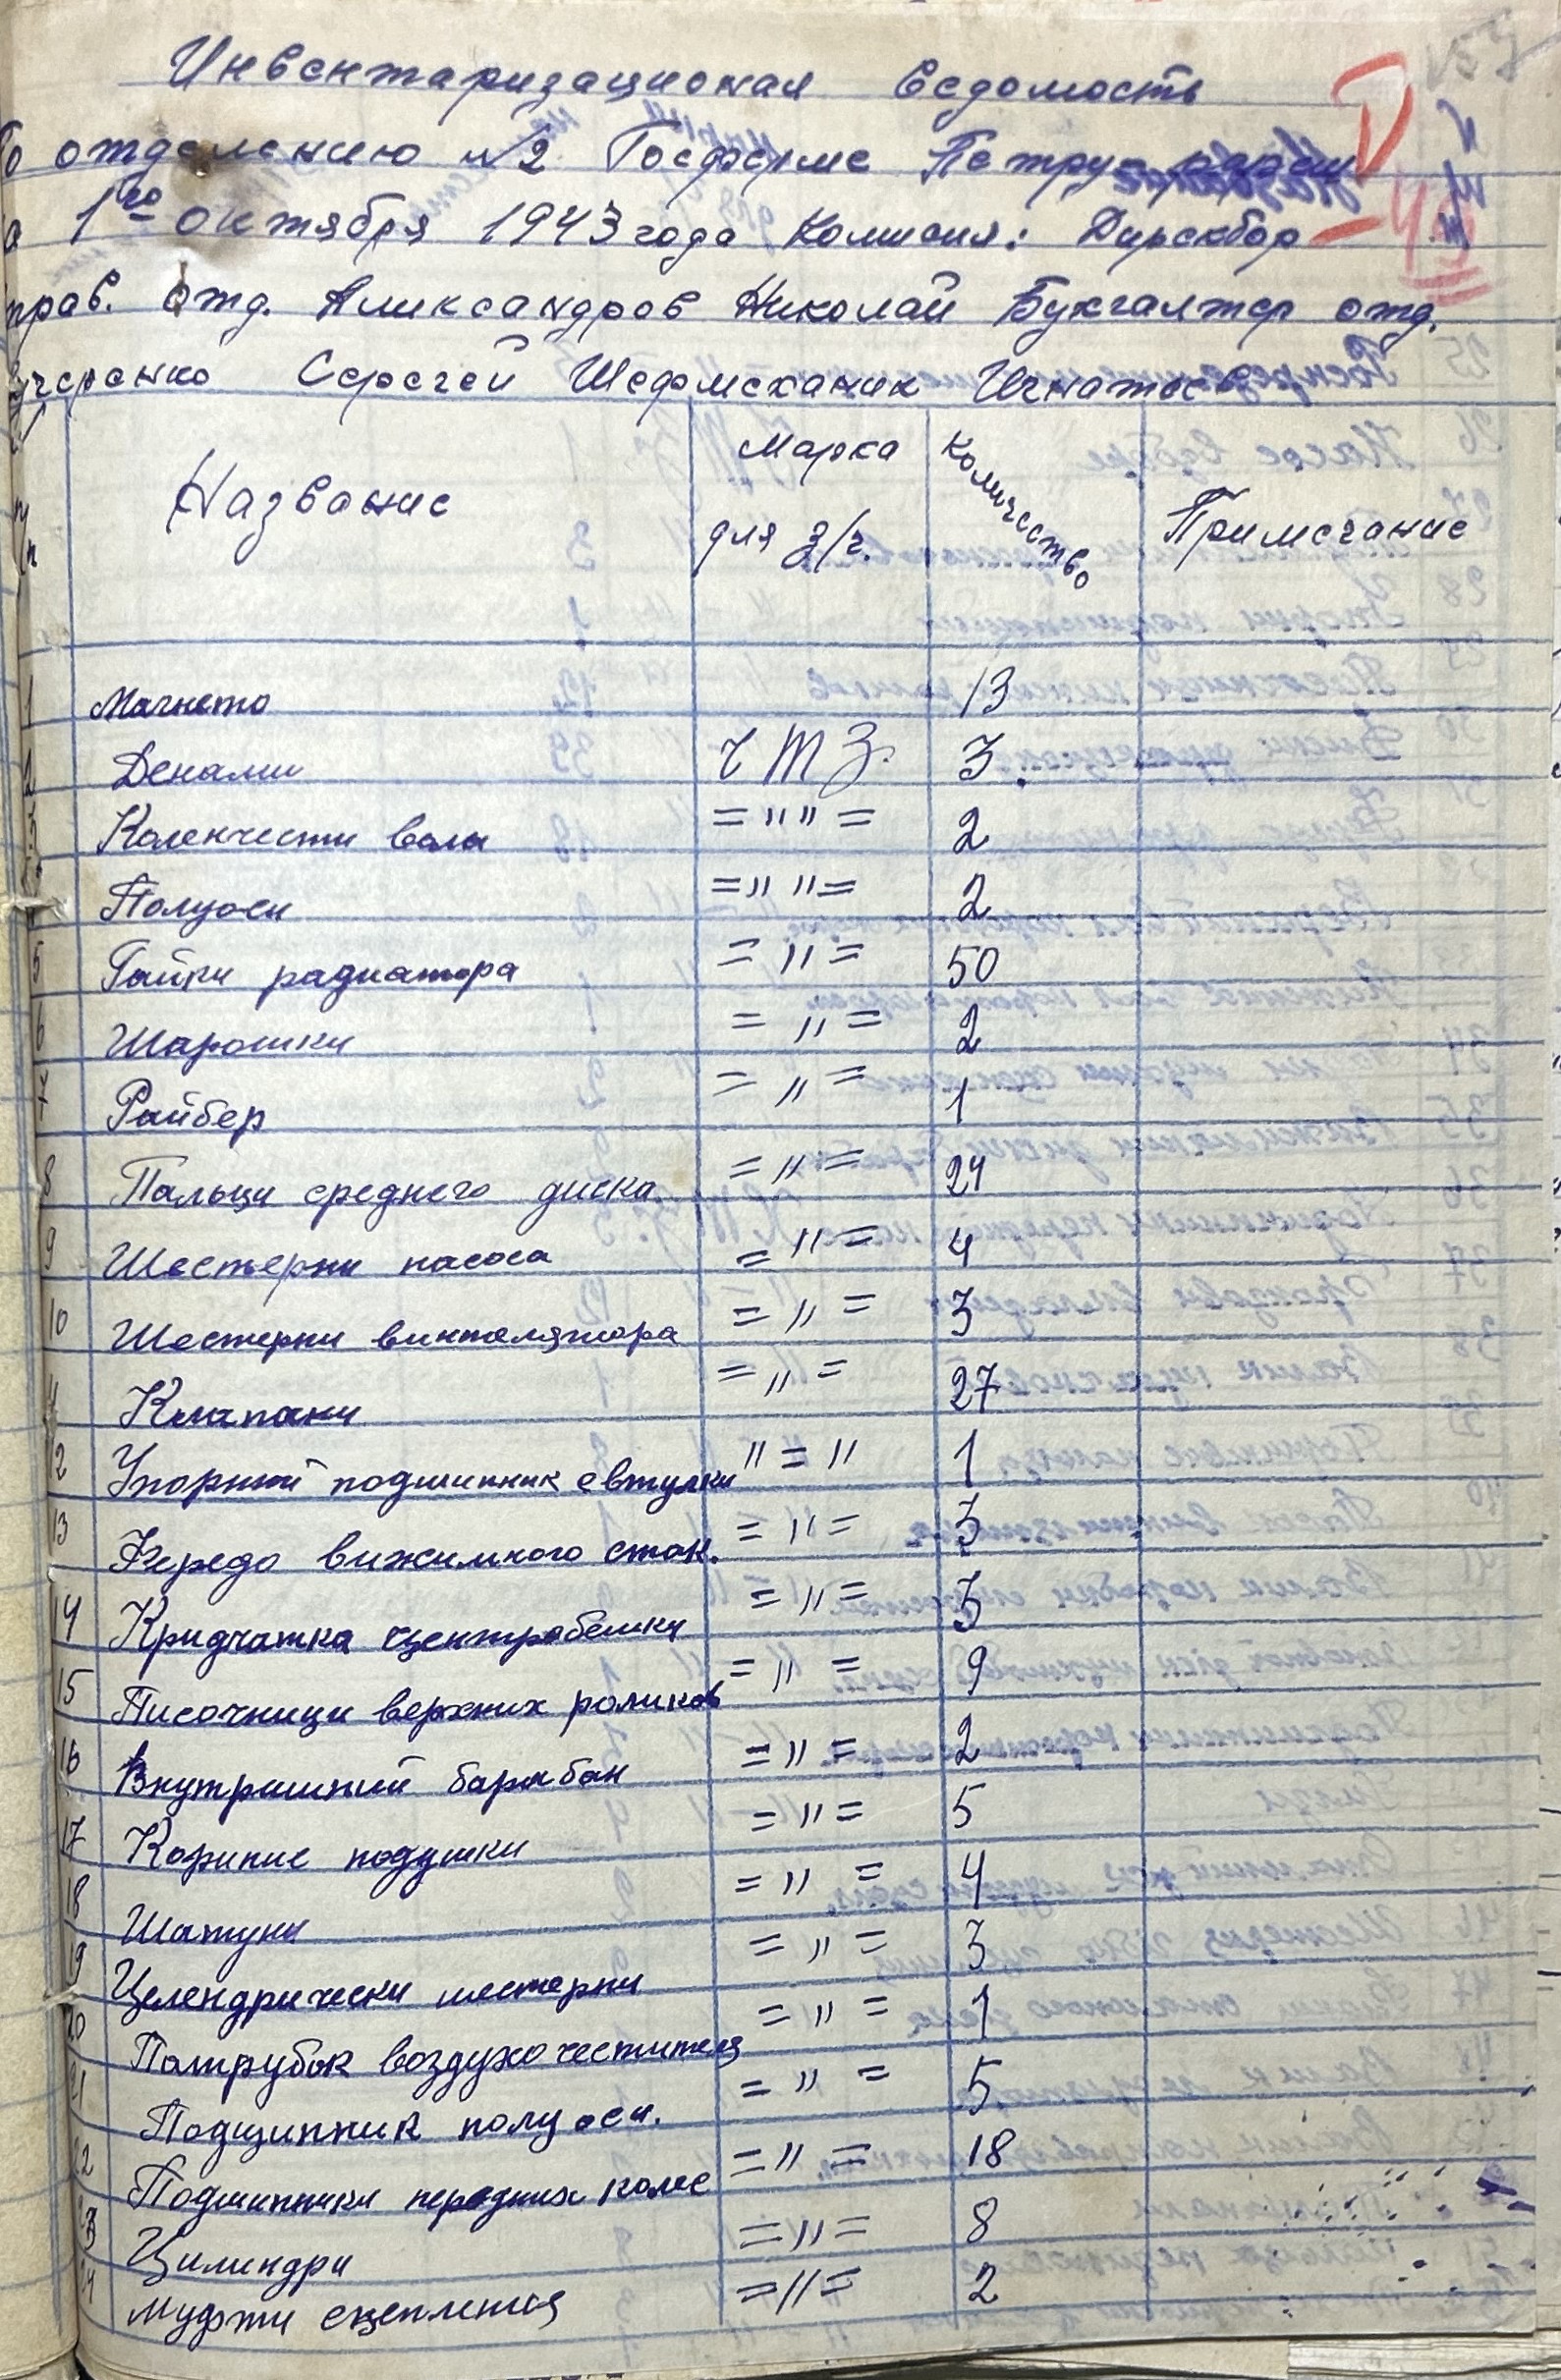 Инвентаризационая ведомость
по отделению №2 Госферме Петру-рареш
на 1го октября 1943 года Комисия: Директор
прав. Отд. Аликсандров Николай Бухгалтер отд.
Кучеренко Сергей Шефмеханик Игнатьев
п/п Название Марка для з/ч. Количество Примечание
1 Магнето 13
2 Денами ЧТЗ. 3
3 Коленчести вали = " " = 2
4 Полуоси = " " = 2
5 Гайки радиатора = " = 50
6 Шарошки = " = 2
7 Райбер = " = 1
8 Пальци среднего диска = " = 24
9 Шестерни насоса = " = 4
10 Шестерни винтелятора = " = 3
11 Клапани = " = 27
12 Упорний подшипник свтулки " = " 1
13 вижимного стак. = " = 3
14 Кридчатка центробешки = " = 3
15 Писочници верхних роликов = " = 9
16 Внутриший барабан = " = 2
17 Корипие подушки = " = 5
18 Шатуни = " = 4
19 Целендрически шестерни = " = 3
20 Патрубок воздухочестителя = " = 1
21 Подшипник полуоси. = " = 5
22 Подшипники передних колес = " = 18
23 Цилиндри = " = 8
24 Муфти сцепления = " = 2